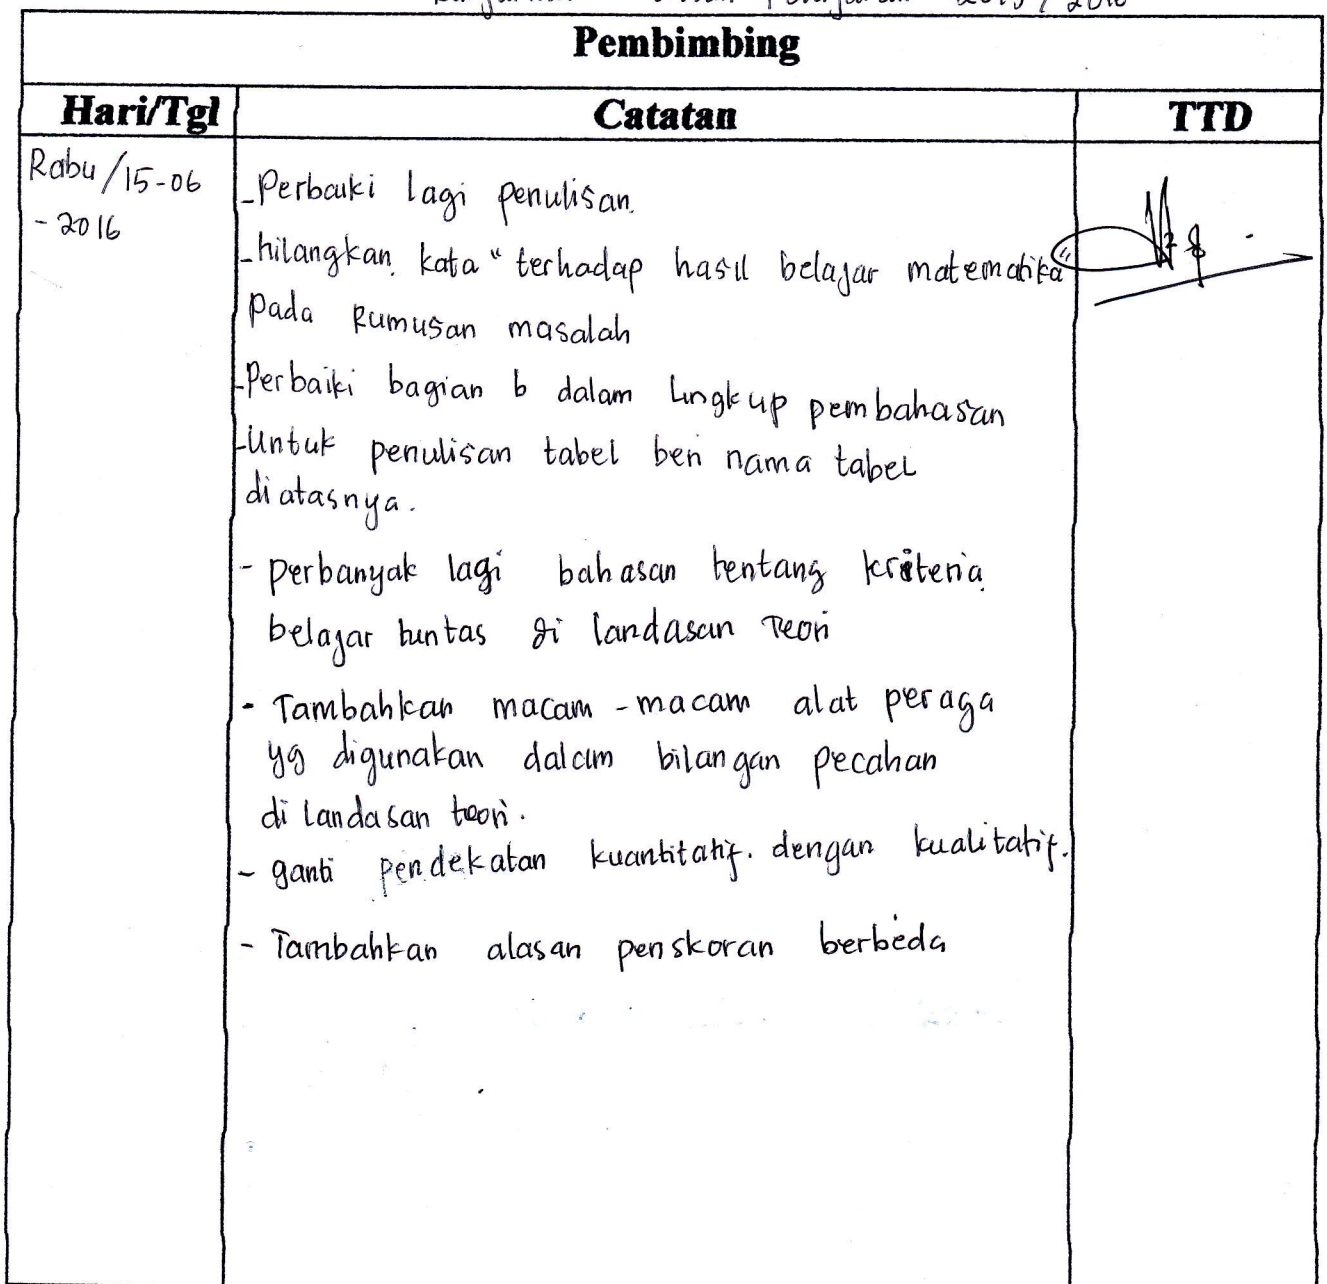 2015/2016
Pembimbing
Hari/Tgl Catatan TTD
Rabu/15-06
- 2016
- Perbaiki lagi penulisan.
- hilangkan kata "terhadap hasil belajar matematika"
pada Rumusan masalah
- Perbaiki bagian b dalam lingkup pembahasan
- Untuk penulisan tabel beri nama tabel
di atasnya.
- perbanyak lagi bahasan tentang kriteria
belajar tuntas di landasan Teori
- Tambahkan macam-macam alat peraga
yg digunakan dalam bilangan pecahan
di landasan teori.
- ganti pendekatan kuantitatif. dengan kualitatif.
- Tambahkan alasan penskoran berbeda